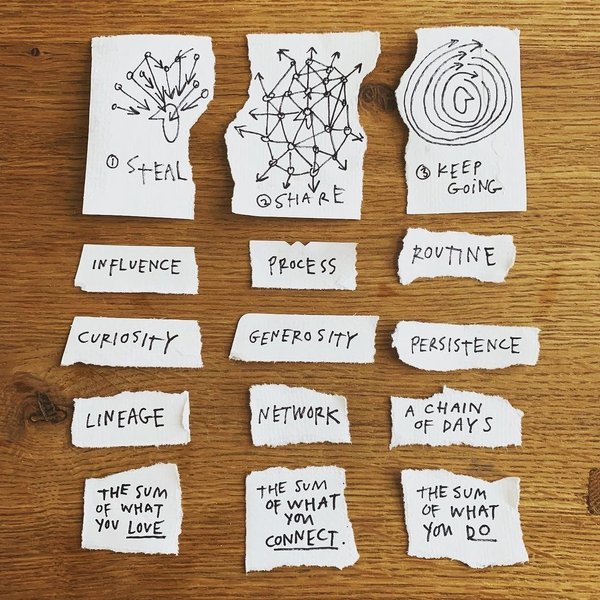 ① STEAL
② SHARE
③ KEEP
GOING
INFLUENCE
PROCESS
ROUTINE
CURIOSITY
GENEROSITY
PERSISTENCE
LINEAGE
NETWORK
A CHAIN
OF DAYS
THE SUM
OF WHAT
YOU LOVE
THE SUM
OF WHAT
YOU
CONNECT.
THE SUM
OF WHAT
YOU DO